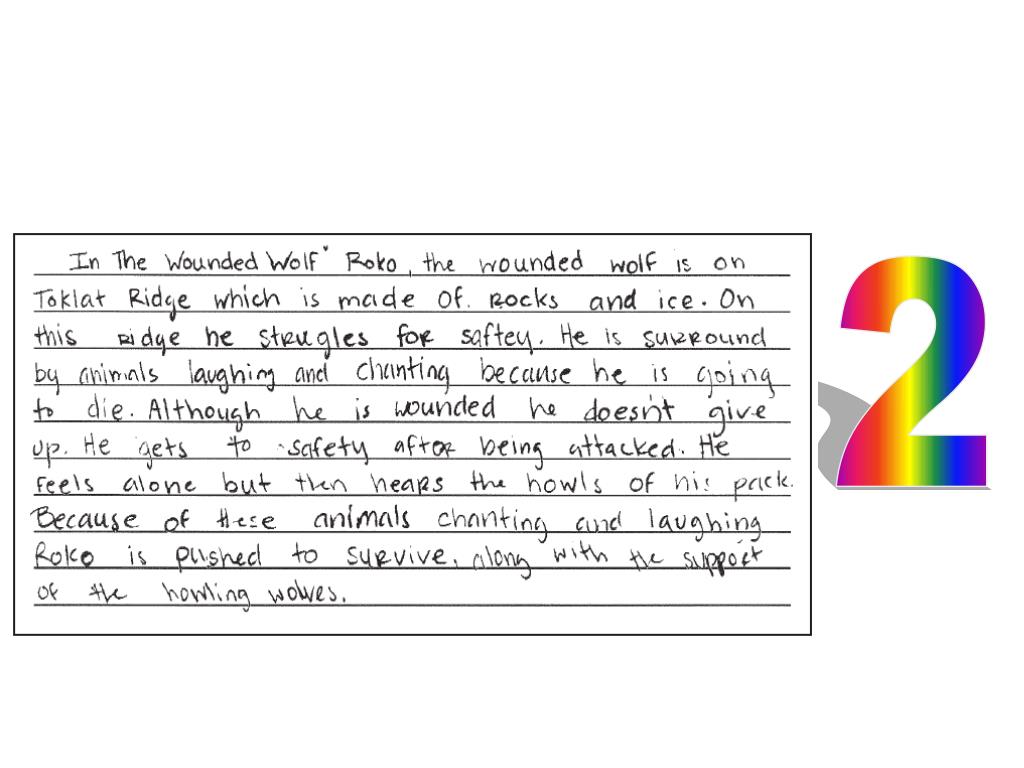 In The Wounded Wolf" Roko, the wounded wolf is on
Toklat Ridge which is made of. Rocks and ice. On
this ridge he strugles for saftey. He is surround
by animals laughing and chanting because he is going
to die. Although he is wounded he doesn't give
up. He gets to safety after being attacked. He
feels alone but then hears the howls of his pack.
Because of these animals chanting and laughing
Roko is pushed to survive, along with the support
of the howling wolves.
2